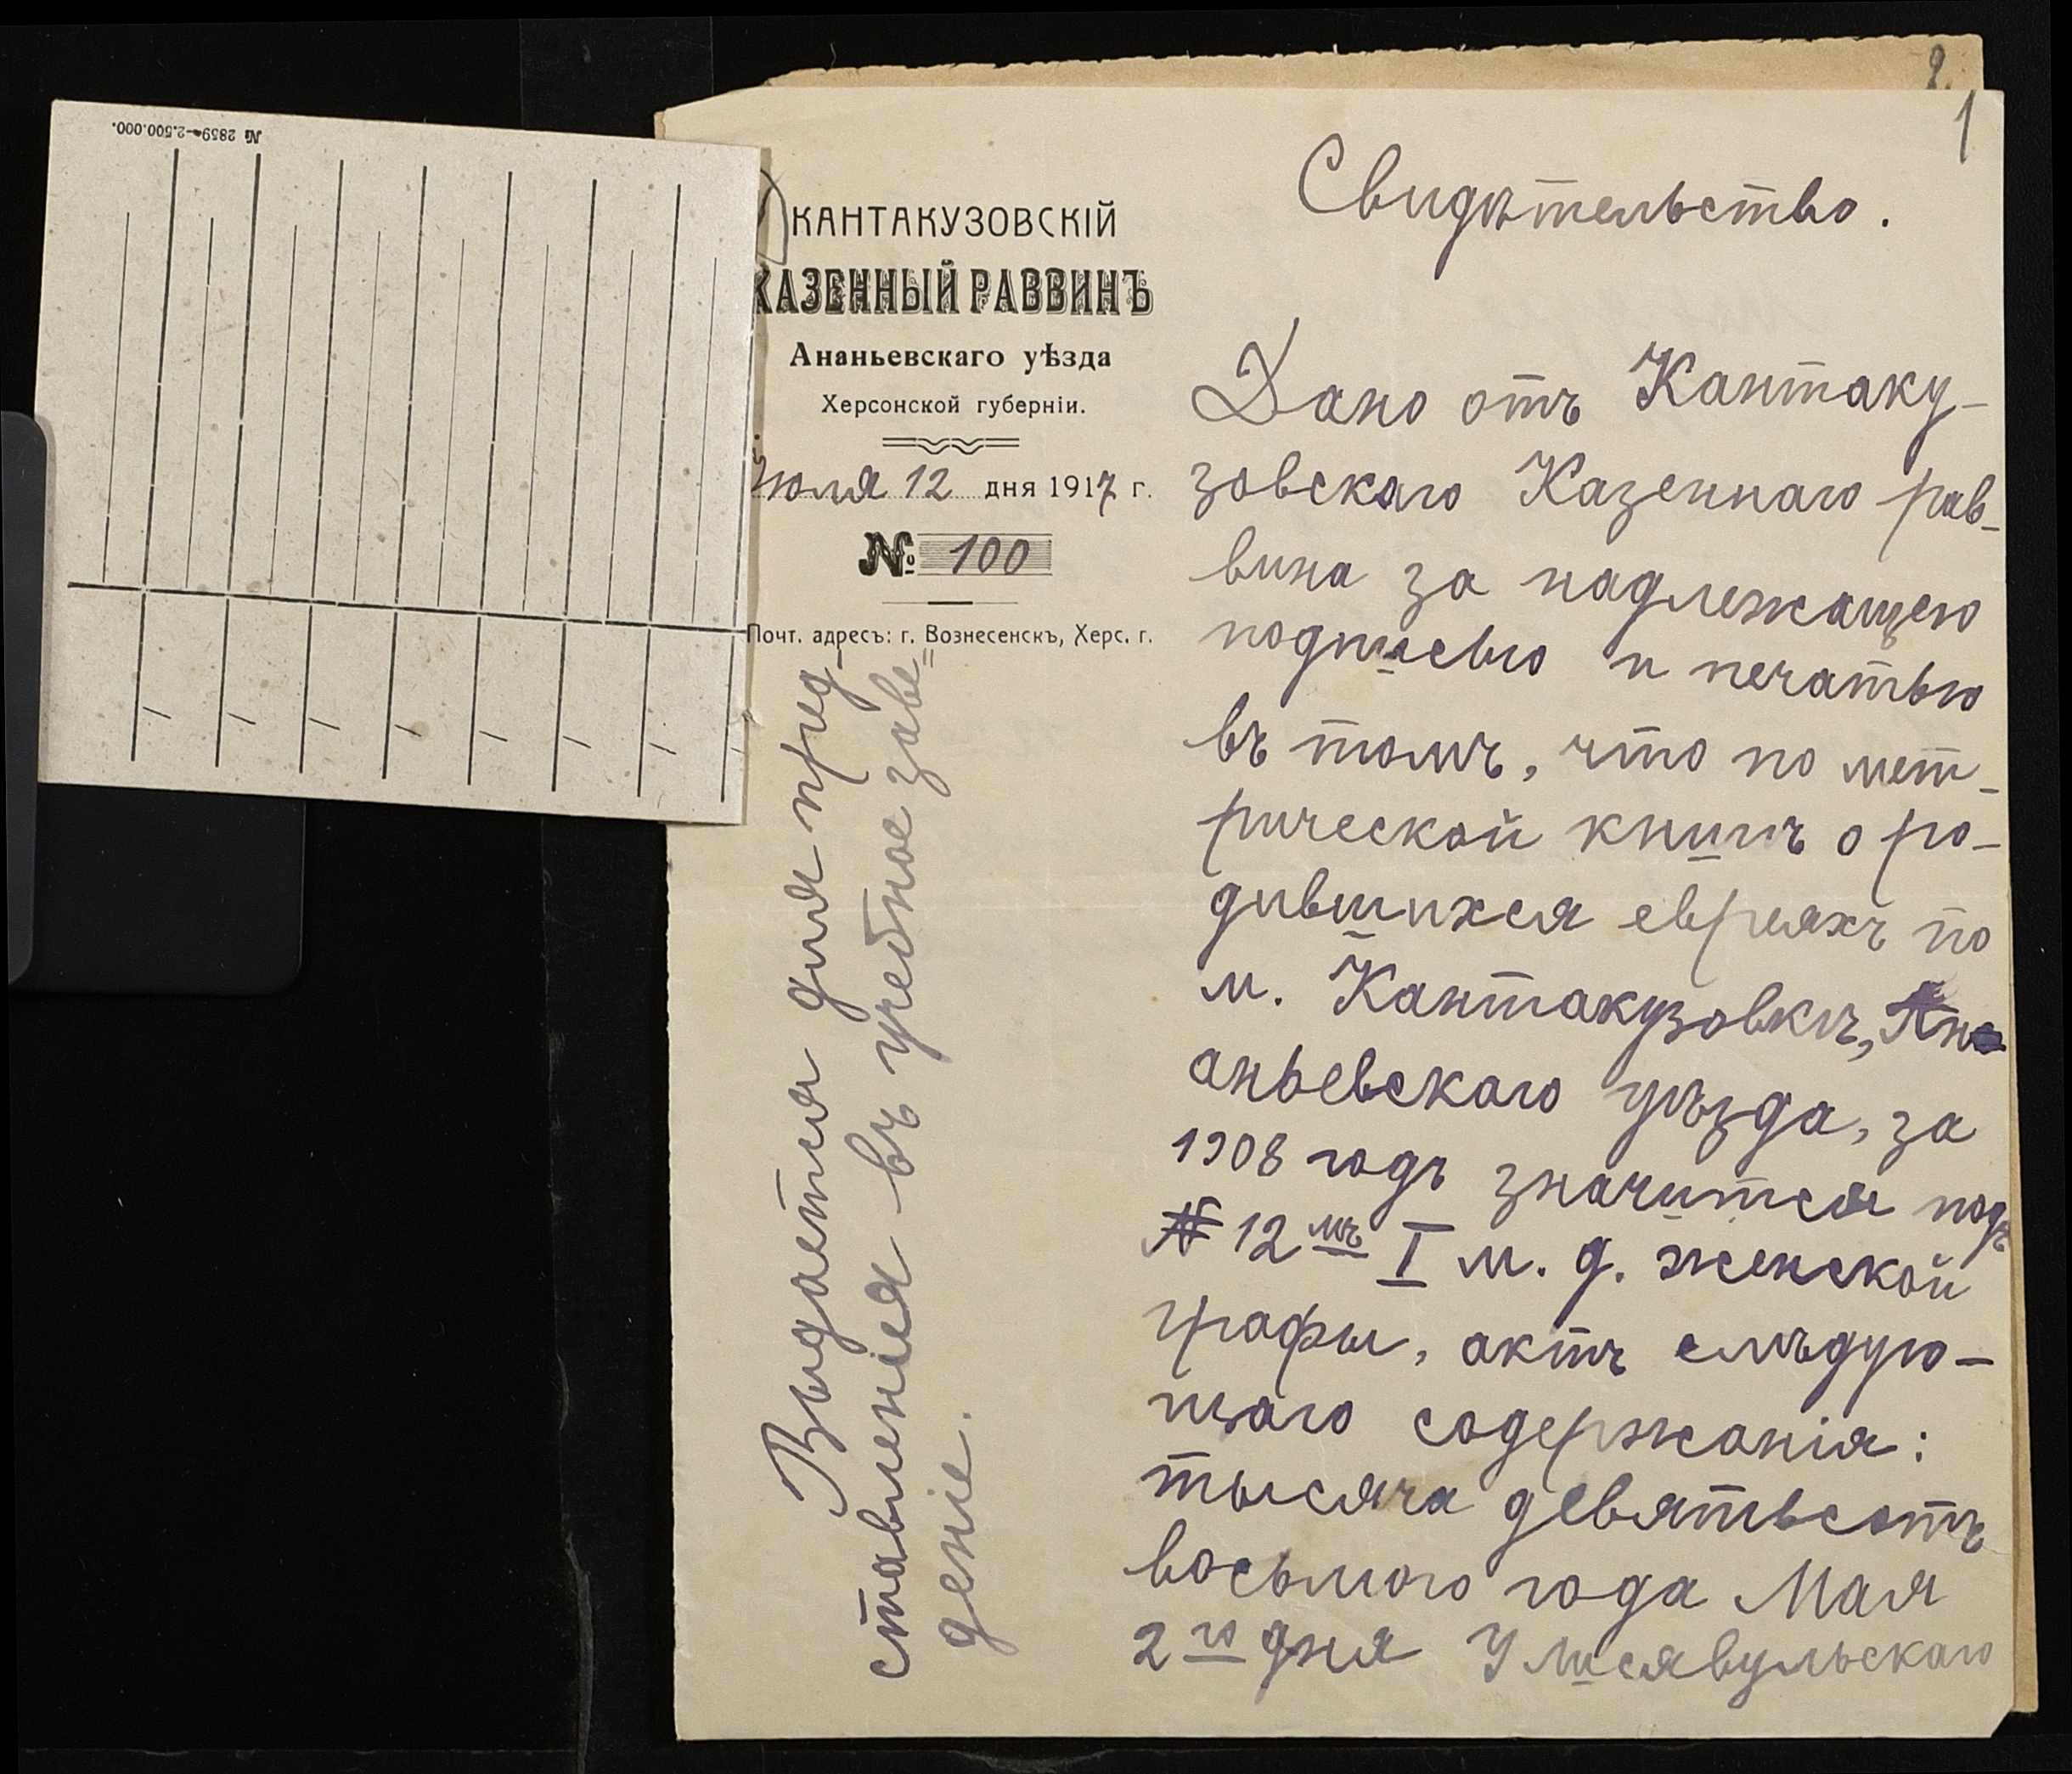 № 2859—2.500.000.
2.
1
КАНТАКУЗОВСКІЙ
КАЗЕННЫЙ РАВВИНЪ
Ананьевскаго уѣзда
Херсонской губерніи.
Іюля 12 дня 1917 г.
№ 100
Почт. адресъ: г. Вознесенскъ, Херс. г.
Выдается для пред-
ставленія въ учебное заве=
деніе.
Свидѣтельство.
Дано отъ Кантаку-
зовскаго Казеннаго рав-
вина за надлежащею
подписью и печатью
въ томъ, что по мет-
рической книгѣ о ро-
дившихся евреяхъ по
м. Кантакузовкѣ, Ан
аньевскаго уѣзда, за
1908 годъ значится подъ
№ 12мъ I м. д. женской
графы, актъ слѣдую-
щаго содержанія:
тысяча девятьсотъ
восьмого года Мая
2го дня У